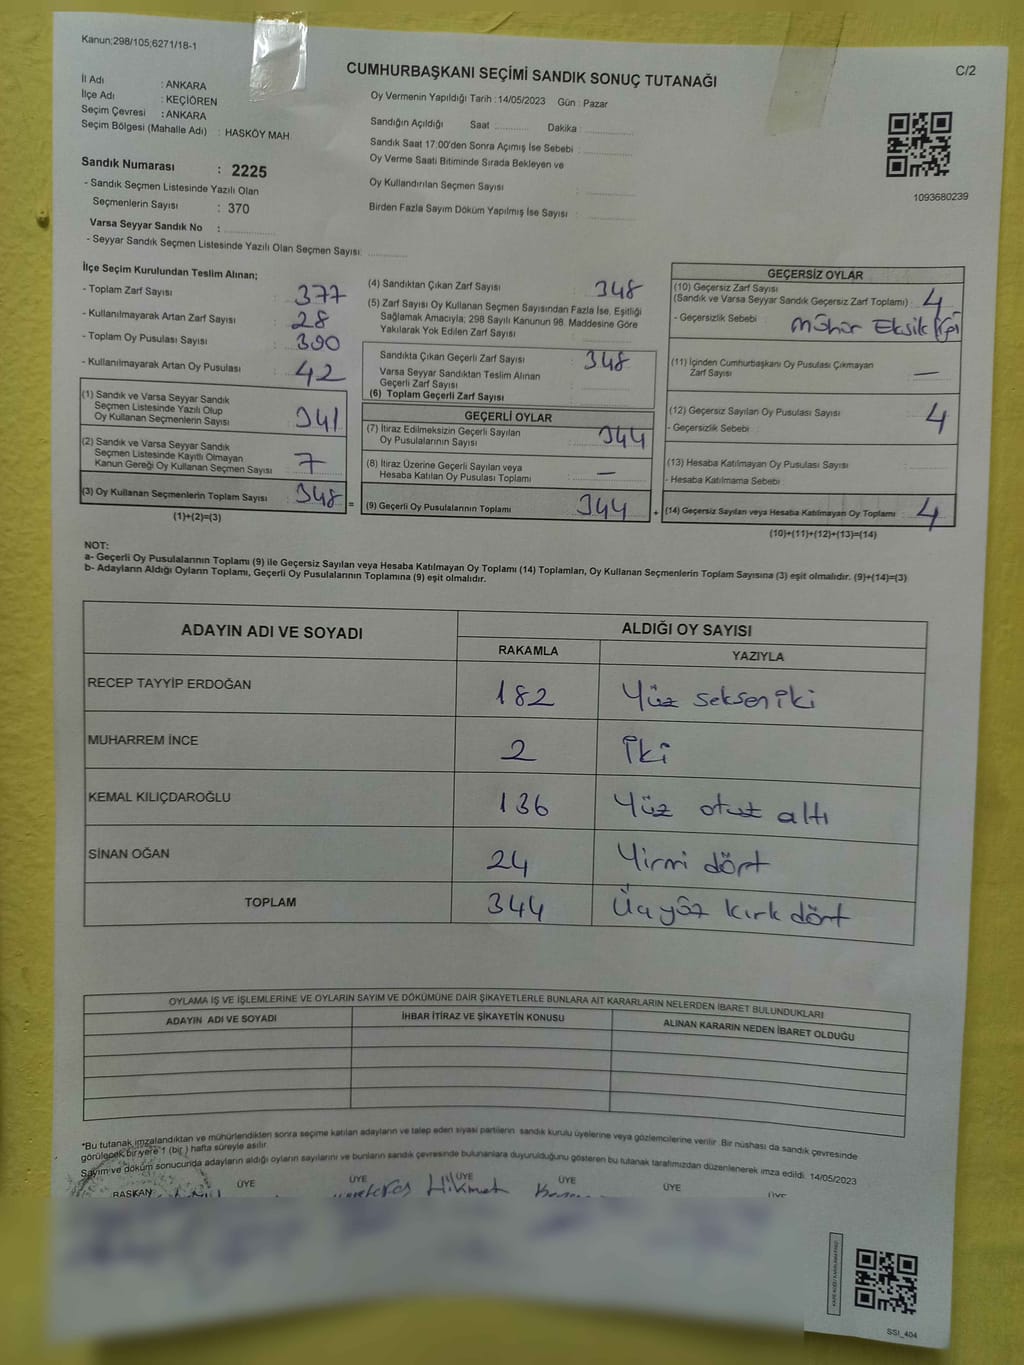 Kanun;298/105;6271/18-1
CUMHURBAŞKANI SEÇİMİ SANDIK SONUÇ TUTANAĞI
C/2
İl Adı : ANKARA
İlçe Adı : KEÇİÖREN
Seçim Çevresi : ANKARA
Seçim Bölgesi (Mahalle Adı) : HASKÖY MAH.
Sandık Numarası : 2225
- Sandık Seçmen Listesinde Yazılı Olan
Seçmenlerin Sayısı : 370
Varsa Seyyar Sandık No :
- Seyyar Sandık Seçmen Listesinde Yazılı Olan Seçmen Sayısı:
Oy Vermenin Yapıldığı Tarih :14/05/2023 Gün : Pazar
Sandığın Açıldığı Saat Dakika :
Sandık Saat 17:00'den Sonra Açımış İse Sebebi :
Oy Verme Saati Bitiminde Sırada Bekleyen ve
Oy Kullandırılan Seçmen Sayısı :
Birden Fazla Sayım Döküm Yapılmış İse Sayısı :
1093680239
İlçe Seçim Kurulundan Teslim Alınan;
- Toplam Zarf Sayısı : 377
- Kullanılmayarak Artan Zarf Sayısı : 28
- Toplam Oy Pusulası Sayısı : 390
- Kullanılmayarak Artan Oy Pusulası : 42
(1) Sandık ve Varsa Seyyar Sandık
Seçmen Listesinde Yazılı Olup
Oy Kullanan Seçmenlerin Sayısı : 341
(2) Sandık ve Varsa Seyyar Sandık
Seçmen Listesinde Kayıtlı Olmayan
Kanun Gereği Oy Kullanan Seçmen Sayısı : 7
(3) Oy Kullanan Seçmenlerin Toplam Sayısı : 348 =
(1)+(2)=(3)
(4) Sandıktan Çıkan Zarf Sayısı : 348
(5) Zarf Sayısı Oy Kullanan Seçmen Sayısından Fazla İse, Eşitliği
Sağlamak Amacıyla; 298 Sayılı Kanunun 98. Maddesine Göre
Yakılarak Yok Edilen Zarf Sayısı :
Sandıkta Çıkan Geçerli Zarf Sayısı : 348
Varsa Seyyar Sandıktan Teslim Alınan
Geçerli Zarf Sayısı :
(6) Toplam Geçerli Zarf Sayısı :
GEÇERLİ OYLAR
(7) İtiraz Edilmeksizin Geçerli Sayılan
Oy Pusulalarının Sayısı : 344
(8) İtiraz Üzerine Geçerli Sayılan veya
Hesaba Katılan Oy Pusulası Toplamı : —
(9) Geçerli Oy Pusulalarının Toplamı : 344 +
GEÇERSİZ OYLAR
(10) Geçersiz Zarf Sayısı
(Sandık ve Varsa Seyyar Sandık Geçersiz Zarf Toplamı) : 4
- Geçersizlik Sebebi : Mühür Eksikliği
(11) İçinden Cumhurbaşkanı Oy Pusulası Çıkmayan
Zarf Sayısı : —
(12) Geçersiz Sayılan Oy Pusulası Sayısı : 4
- Geçersizlik Sebebi :
(13) Hesaba Katılmayan Oy Pusulası Sayısı :
- Hesaba Katılmama Sebebi :
(14) Geçersiz Sayılan veya Hesaba Katılmayan Oy Toplamı : 4
(10)+(11)+(12)+(13)=(14)
NOT:
a- Geçerli Oy Pusulalarının Toplamı (9) ile Geçersiz Sayılan veya Hesaba Katılmayan Oy Toplamı (14) Toplamları, Oy Kullanan Seçmenlerin Toplam Sayısına (3) eşit olmalıdır. (9)+(14)=(3)
b- Adayların Aldığı Oyların Toplamı, Geçerli Oy Pusulalarının Toplamına (9) eşit olmalıdır.
ADAYIN ADI VE SOYADI ALDIĞI OY SAYISI
RAKAMLA YAZIYLA
RECEP TAYYİP ERDOĞAN 182 Yüz seksen iki
MUHARREM İNCE 2 İki
KEMAL KILIÇDAROĞLU 136 Yüz otuz altı
SİNAN OĞAN 24 Yirmi dört
TOPLAM 344 Üçyüz kırk dört
OYLAMA İŞ VE İŞLEMLERİNE VE OYLARIN SAYIM VE DÖKÜMÜNE DAİR ŞİKAYETLERLE BUNLARA AİT KARARLARIN NELERDEN İBARET BULUNDUKLARI
ADAYIN ADI VE SOYADI İHBAR İTİRAZ VE ŞİKAYETİN KONUSU ALINAN KARARIN NEDEN İBARET OLDUĞU
*Bu tutanak imzalandıktan ve mühürlendikten sonra seçime katılan adayların ve talep eden siyasi partilerin sandık kurulu üyelerine veya gözlemcilerine verilir. Bir nüshası da sandık çevresinde
görülecek bir yere 1 (bir ) hafta süreyle asılır.
Sayım ve döküm sonucunda adayların aldığı oyların sayılarını ve bunların sandık çevresinde bulunanlara duyurulduğunu gösteren bu tutanak tarafımızdan düzenlenerek imza edildi. 14/05/2023
BAŞKAN ÜYE ÜYE ÜYE ÜYE ÜYE ÜYE
Hikmet
SSI_404